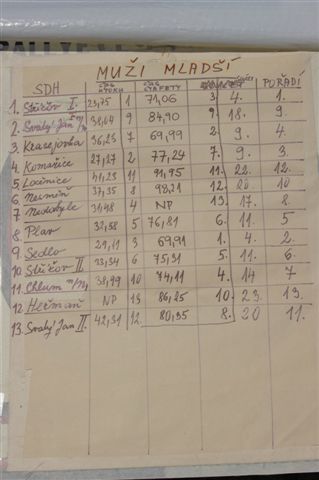 MUŽI MLADŠÍ
SDH ČAS ÚTOKU ČAS ŠTAFETY POŘADÍ
1. Střížov I. 23,75 1 71,06 3 4. 1.
2. Svatý Jan n/M 38,04 9 84,90 9 18. 9.
3 Krasejovka 36,23 7 69,99 2 9. 4.
4. Komařice 27,27 2 77,24 7. 9. 3.
5 Ločenice 41,23 11 91,95 11. 22. 12.
6 Nesměň 37,35 8 98,21 12. 20. 10
7 Nedabyle 31,48 4 NP 13. 17. 8.
8 Plav 32,58 5 76,81 6. 11. 5
9. Sedlo 29,11 3 69,91 1. 4. 2.
10 Střížov II. 33,34 6 75,31 5. 11. 6.
11 Chlum n/M 38,99 10 74,11 4. 14 7
12 Heřmaň NP 13 86,25 10. 23. 13.
13. Svatý Jan II. 42,31 12. 80,35 8. 20 11.